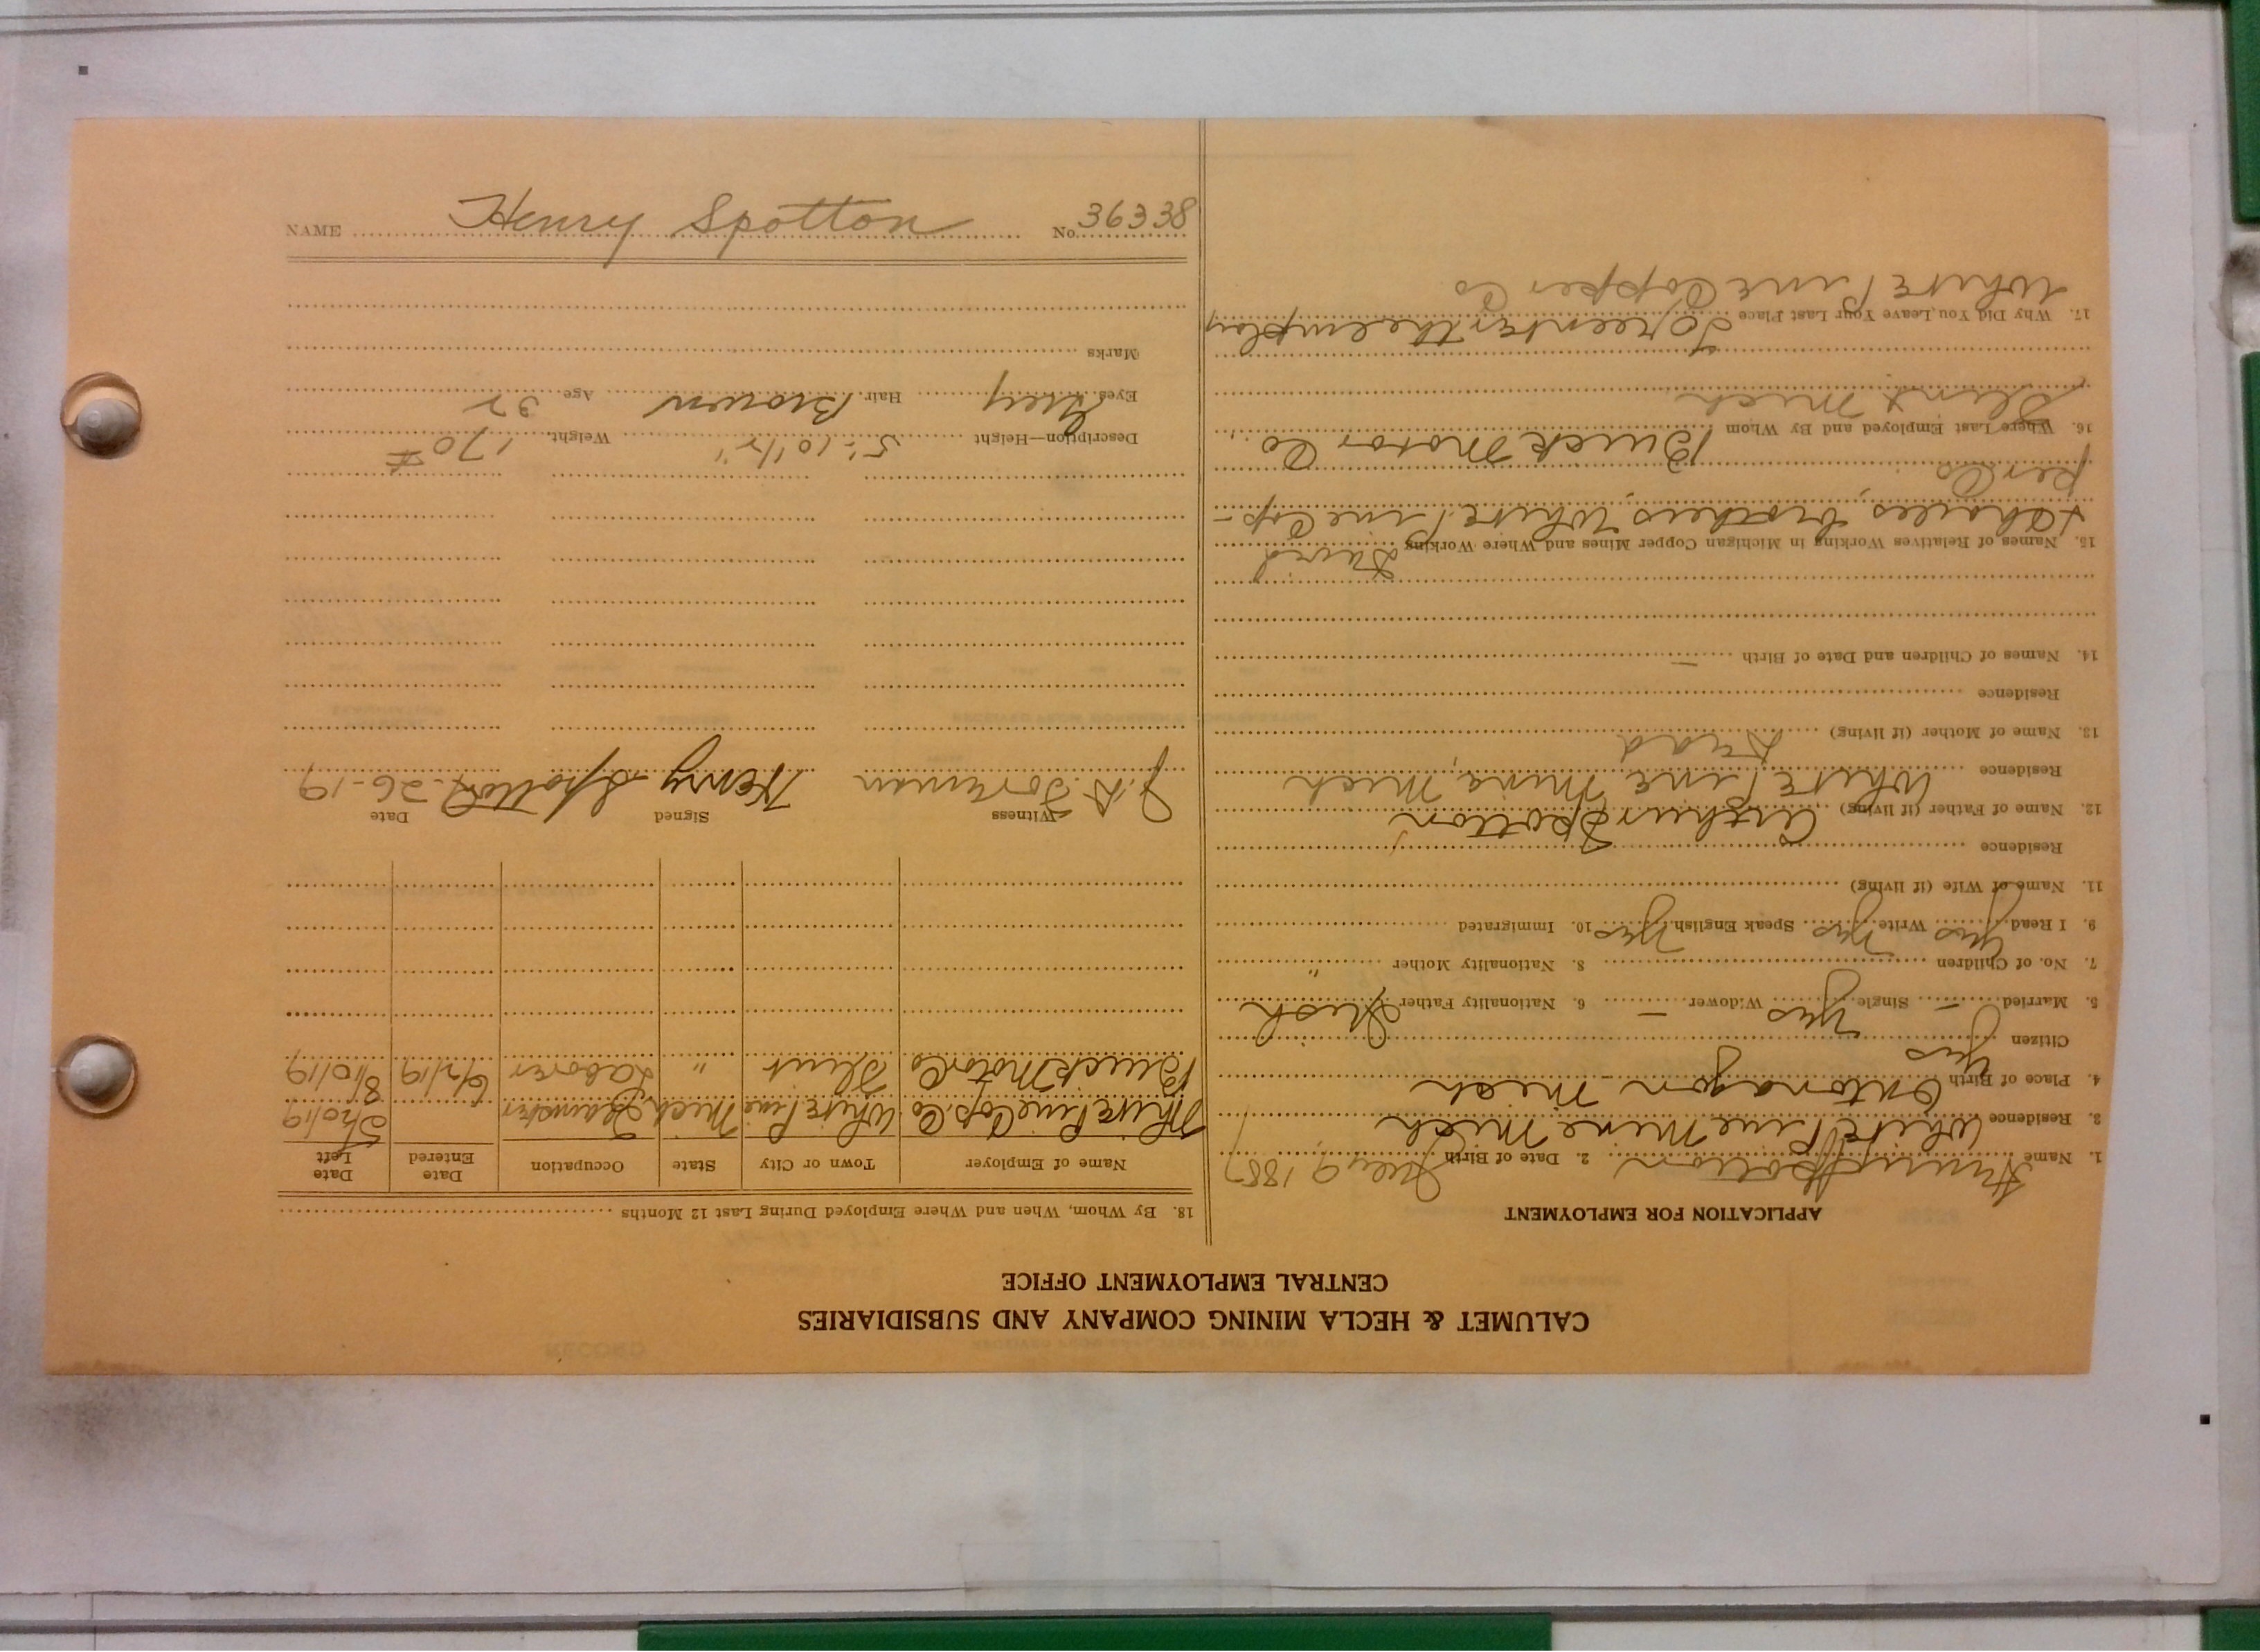 NAME Henry Spotton No. 36338
CALUMET & HECLA MINING COMPANY AND SUBSIDIARIES
CENTRAL EMPLOYMENT OFFICE
APPLICATION FOR EMPLOYMENT
1. Name Henry Spotton 2. Date of Birth 9 1887
3. Residence White Pine Mine Mich
4. Place of Birth Ontonagon Mich
Citizen Yes
5. Married — Single Yes Widower — 6. Nationality Father Irish
7. No. of Children 8. Nationality Mother "
9. I Read Yes Write Yes Speak English Yes 10. Immigrated
11. Name of Wife (if living)
Residence
12. Name of Father (if living) Arthur Spotton
Residence White Pine Mine, Mich
13. Name of Mother (if living) Dead
Residence
14. Names of Children and Date of Birth —
15. Names of Relatives Working in Michigan Copper Mines and Where Working David
+ Charles, brothers, White Pine Cop-
per Co
16. Where Last Employed and By Whom Buick Motor Co
Flint Mich
17. Why Did You Leave Your Last Place To reenter the employ
White Pine Copper Co
18. By Whom, When and Where Employed During Last 12 Months
Name of Employer Town or City State Occupation Date Entered Date Left
White Pine Cop. Co White Pine Mich Teamster 5/20/19
Buick Motor Co Flint " Laborer 6/2/19 8/10/19
Witness Signed Date
J. A. Henry Spotton 26-19
Description—Height 5'-10 1/2" Weight 170 #
Eyes Grey Hair Brown Age 32
Marks